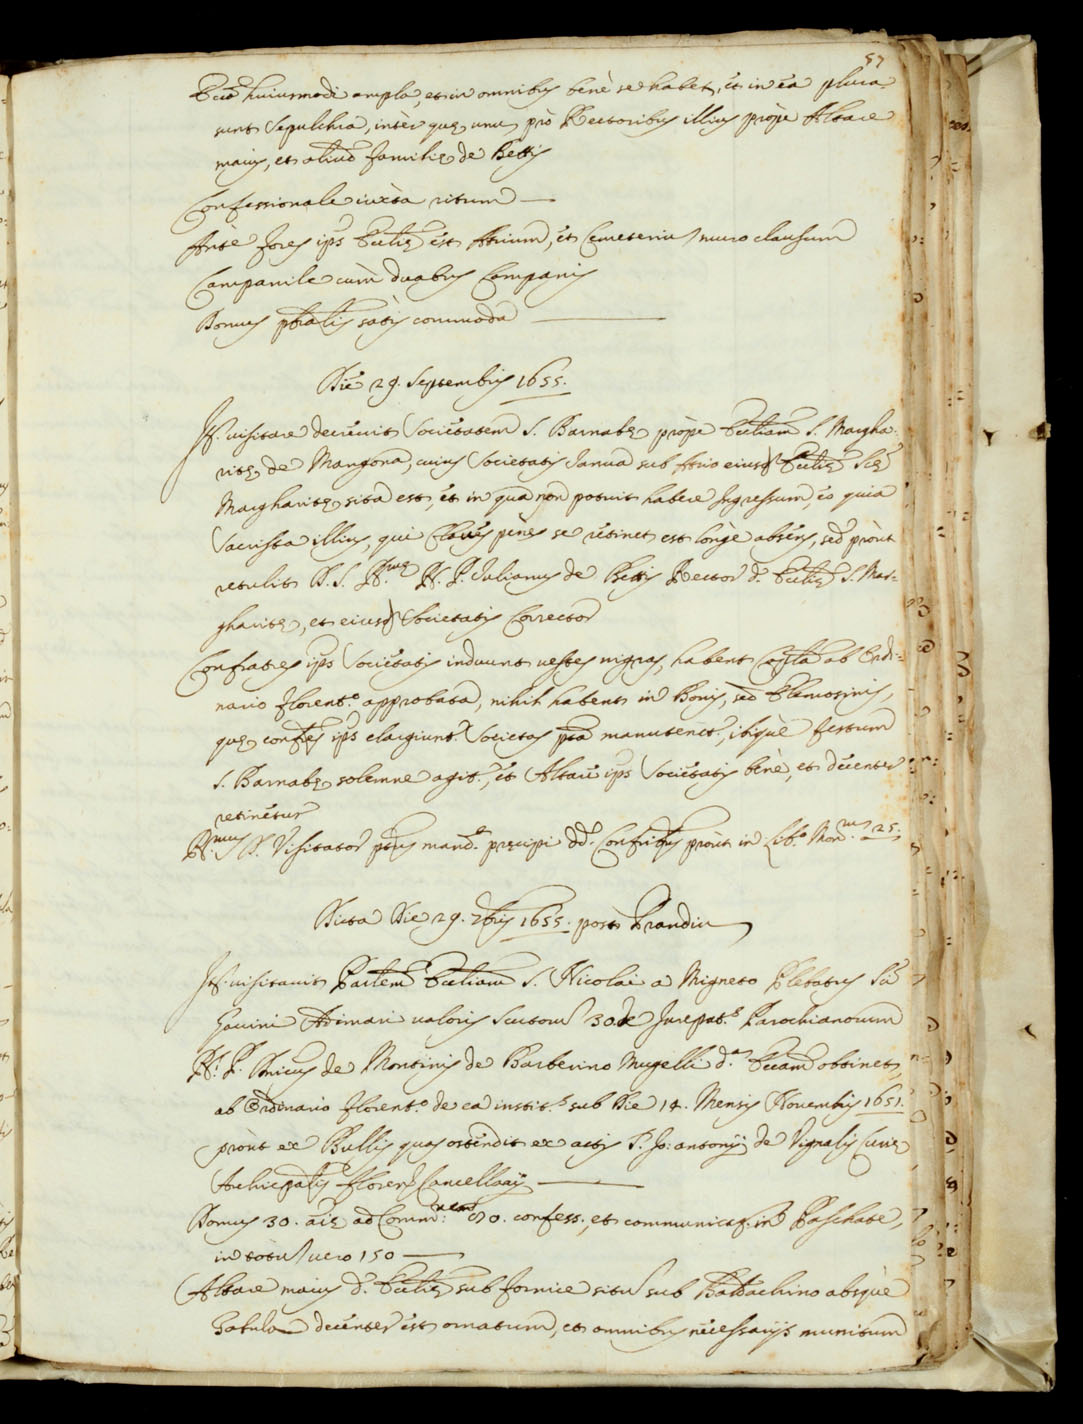 57
Eccã huiusmodi ampla, et in omnibus benè se habet, et in ea plura
sunt sepulchra, intèr quę unũ prò Rectoribus illius pròpè Altare
maius, et aliud familię de Bettis
Confessionale iuxta ritum
Antè fores ipś Ecclię est Atrium, et Cemeteriũ muro clausum
Campanile cùm duabus Campanis
Domus pbralis satis commoda
Die 29. Septembris 1655.
visitare decreuit Societatem S. Barnabę pròpe Eccliam S. Margha
ritę de Mangona, cuius Societatis Ianua sub Atrio eiusd Ecclię Scę
Margharitę sita est, et in qua non potuit habere Ingressum, eo quia
Sacrista illius, qui claues penes se retinet est longè absens, sed pròut
retulit P. Iulianus de Bettis Rector d. Ecclię S. Mar-
gharitę, et eiusd Societatis Corrector
Confratres ipś Societatis induunt uestes nigras, habent Capla ab Ordi-
nario florent.o approbata, nihil habent in Bonis, sed Elemosinis,
quę confres ipś elargiunt.r Societas pta manutenet.r, ibique festum
S. Barnabę solemne agit.r, et Altare ipś Societatis benè, et decenter
retinetur
R.mus D. Visitator pũs mand. pręcipi dd. Confribus pròut in Lib.o Mon. 25.
Dicta Die 29. 7bris 1655. post Prandiũ
visitauit Parlem Eccliam S. Nicolai a Migneto Plebatus Sti
Gauini Adimari ualoris scutorũ 30. de Iurepat.s Parochianorum
P. Amicus de Montinis de Barberino Mugelli d.am Eccam obtinet,
ab Ordinario florent.o de ea instit.s sub Die 14. Mensis Nouembris 1651.
pròut ex Bullis quas ostendit ex actis P. Jo: Antonij de Vignalis Curię
Archiepalis floren. Cancellarij
Domus 30. aię ad Comm.nem 80. confess., et communicat. in Paschate,
in totũ uero 150
Altare maius d. Ecclię sub fornice sitũ sub Baldachino absque
Tabula decenter est ornatum, et omnibus necessarijs munitum